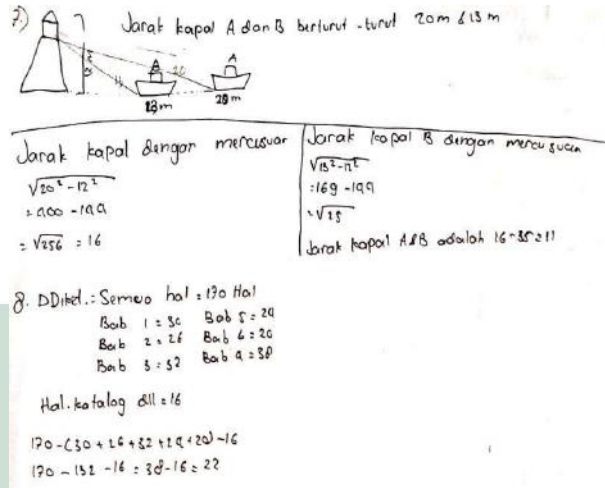 7.)
Jarak kapal A dan B berturut - turut 20 m & 13 m
B
20
A
13
13 m
20 m
Jarak kapal dengan mercusuar
√20² - 12²
= 400 - 144
= √256 = 16
Jarak kapal B dengan mercusuar
√13² - 12²
: 169 - 144
= √25
Jarak kapal A & B adalah 16 - 5 = 11
8. DDiket.: Semua hal = 170 Hal
Bab 1 = 30 Bab 5 = 24
Bab 2 = 26 Bab 6 = 20
Bab 3 = 32 Bab 4 = 38
Hal. katalog dll = 16
170 - (30 + 26 + 32 + 24 + 20) - 16
170 - 132 - 16 = 38 - 16 = 22